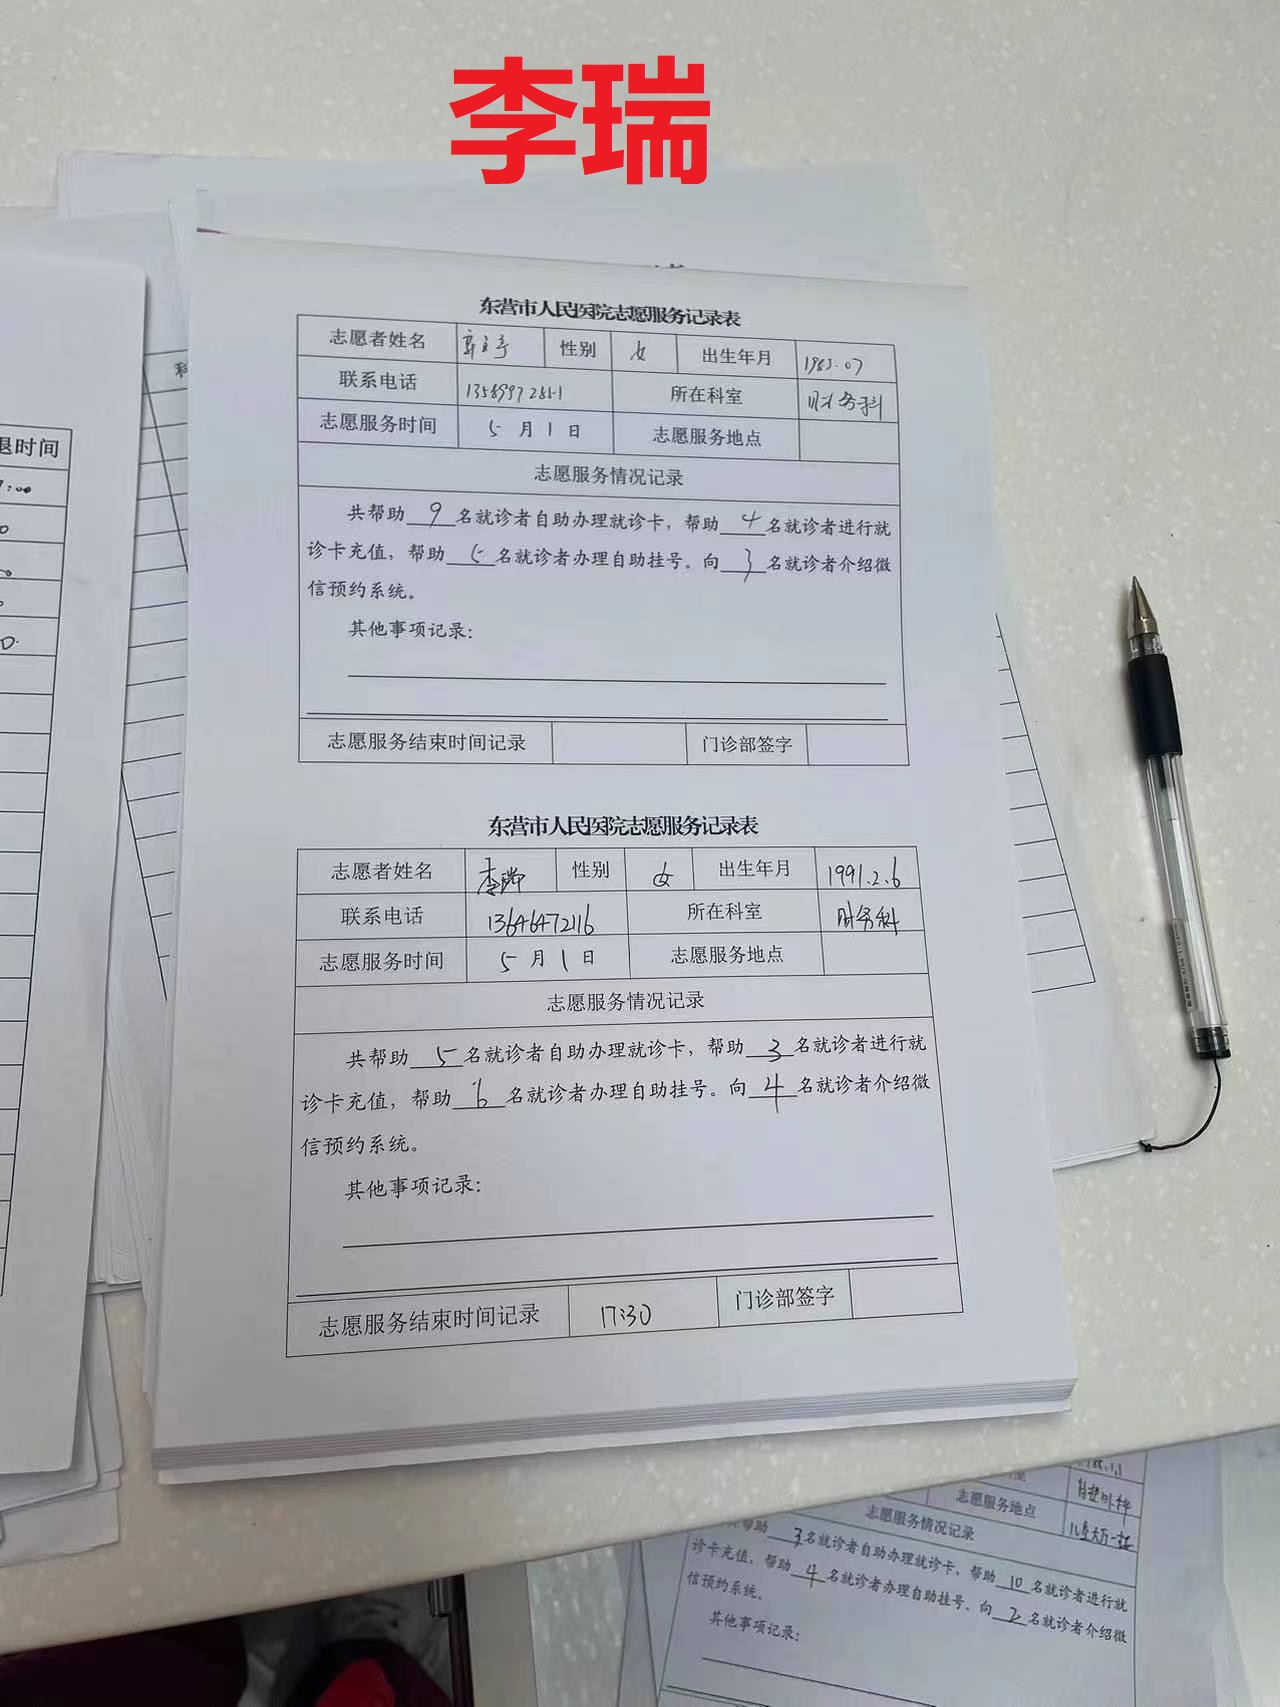 李瑞
东营市人民医院志愿服务记录表
志愿者姓名 性别 女 出生年月
联系电话 所在科室 财务科
志愿服务时间 5月1日 志愿服务地点
志愿服务情况记录
共帮助9名就诊者自助办理就诊卡，帮助4名就诊者进行就
诊卡充值，帮助5名就诊者办理自助挂号。向3名就诊者介绍微
信预约系统。
其他事项记录：
志愿服务结束时间记录 门诊部签字
东营市人民医院志愿服务记录表
志愿者姓名 李瑞 性别 女 出生年月 1991.2.6
联系电话 13646472116 所在科室 财务科
志愿服务时间 5月1日 志愿服务地点
志愿服务情况记录
共帮助5名就诊者自助办理就诊卡，帮助3名就诊者进行就
诊卡充值，帮助6名就诊者办理自助挂号。向4名就诊者介绍微
信预约系统。
其他事项记录：
志愿服务结束时间记录 17:30 门诊部签字
退时间
科
志愿服务地点
志愿服务情况记录
帮助3名就诊者自助办理就诊卡，帮助10名就诊者进行就
诊卡充值，帮助4名就诊者办理自助挂号。向2名就诊者介绍微
信预约系统。
其他事项记录：